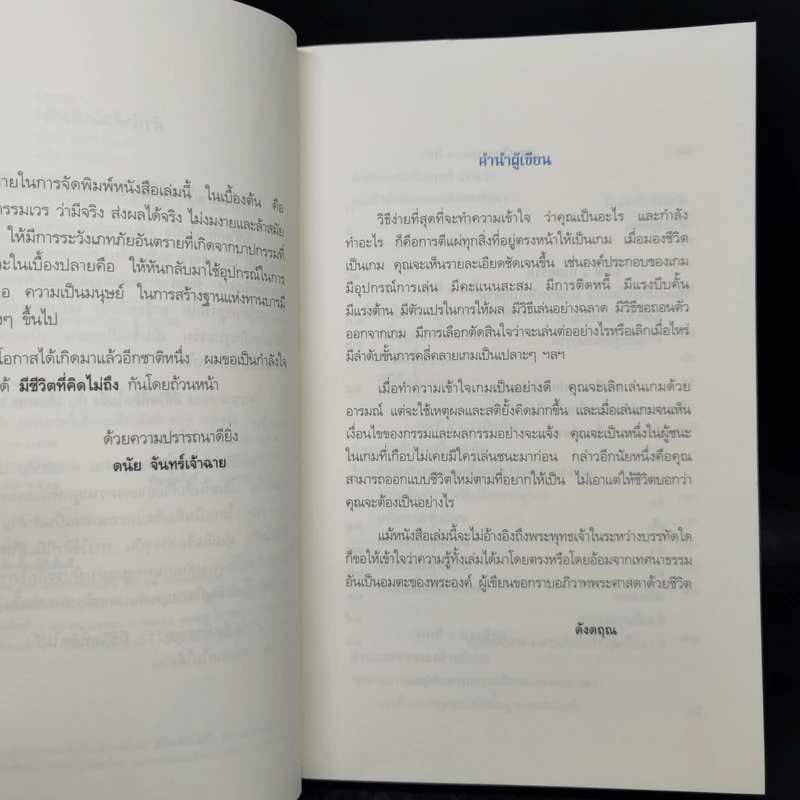 ายในการจัดพิมพ์หนังสือเล่มนี้ ในเบื้องต้น คือ
กรรมเวร ว่ามีจริง ส่งผลได้จริง ไม่งมงายและล้าสมัย
ให้มีการระวังเภทภัยอันตรายที่เกิดจากบาปกรรมที่
ะในเบื้องปลายคือ ให้หันกลับมาใช้อุปกรณ์ในการ
อ ความเป็นมนุษย์ ในการสร้างฐานแห่งทานบารมี
งๆ ขึ้นไป
โอกาสได้เกิดมาแล้วอีกชาติหนึ่ง ผมขอเป็นกำลังใจ
ด้ มีชีวิตที่คิดไม่ถึง กันโดยถ้วนหน้า
ด้วยความปรารถนาดียิ่ง
ดนัย จันทร์เจ้าฉาย
คำนำผู้เขียน
วิธีง่ายที่สุดที่จะทำความเข้าใจ ว่าคุณเป็นอะไร และกำลัง
ทำอะไร ก็คือการตีแผ่ทุกสิ่งที่อยู่ตรงหน้าให้เป็นเกม เมื่อมองชีวิต
เป็นเกม คุณจะเห็นรายละเอียดชัดเจนขึ้น เช่นองค์ประกอบของเกม
มีอุปกรณ์การเล่น มีคะแนนสะสม มีการติดหนี้ มีแรงบีบคั้น
มีแรงต้าน มีตัวแปรในการให้ผล มีวิธีเล่นอย่างฉลาด มีวิธีขอถอนตัว
ออกจากเกม มีการเลือกตัดสินใจว่าจะเล่นต่ออย่างไรหรือเลิกเมื่อไหร่
มีลำดับขั้นการคลี่คลายเกมเป็นเปลาะๆ ฯลฯ
เมื่อทำความเข้าใจเกมเป็นอย่างดี คุณจะเลิกเล่นเกมด้วย
อารมณ์ แต่จะใช้เหตุผลและสติยั้งคิดมากขึ้น และเมื่อเล่นเกมจนเห็น
เงื่อนไขของกรรมและผลกรรมอย่างจะแจ้ง คุณจะเป็นหนึ่งในผู้ชนะ
ในเกมที่เกือบไม่เคยมีใครเล่นชนะมาก่อน กล่าวอีกนัยหนึ่งคือคุณ
สามารถออกแบบชีวิตใหม่ตามที่อยากให้เป็น ไม่เอาแต่ให้ชีวิตบอกว่า
คุณจะต้องเป็นอย่างไร
แม้หนังสือเล่มนี้จะไม่อ้างอิงถึงพระพุทธเจ้าในระหว่างบรรทัดใด
ก็ขอให้เข้าใจว่าความรู้ทั้งเล่มได้มาโดยตรงหรือโดยอ้อมจากเทศนาธรรม
อันเป็นอมตะของพระองค์ ผู้เขียนขอกราบอภิวาทพระศาสดาด้วยชีวิต
ดังตฤณ